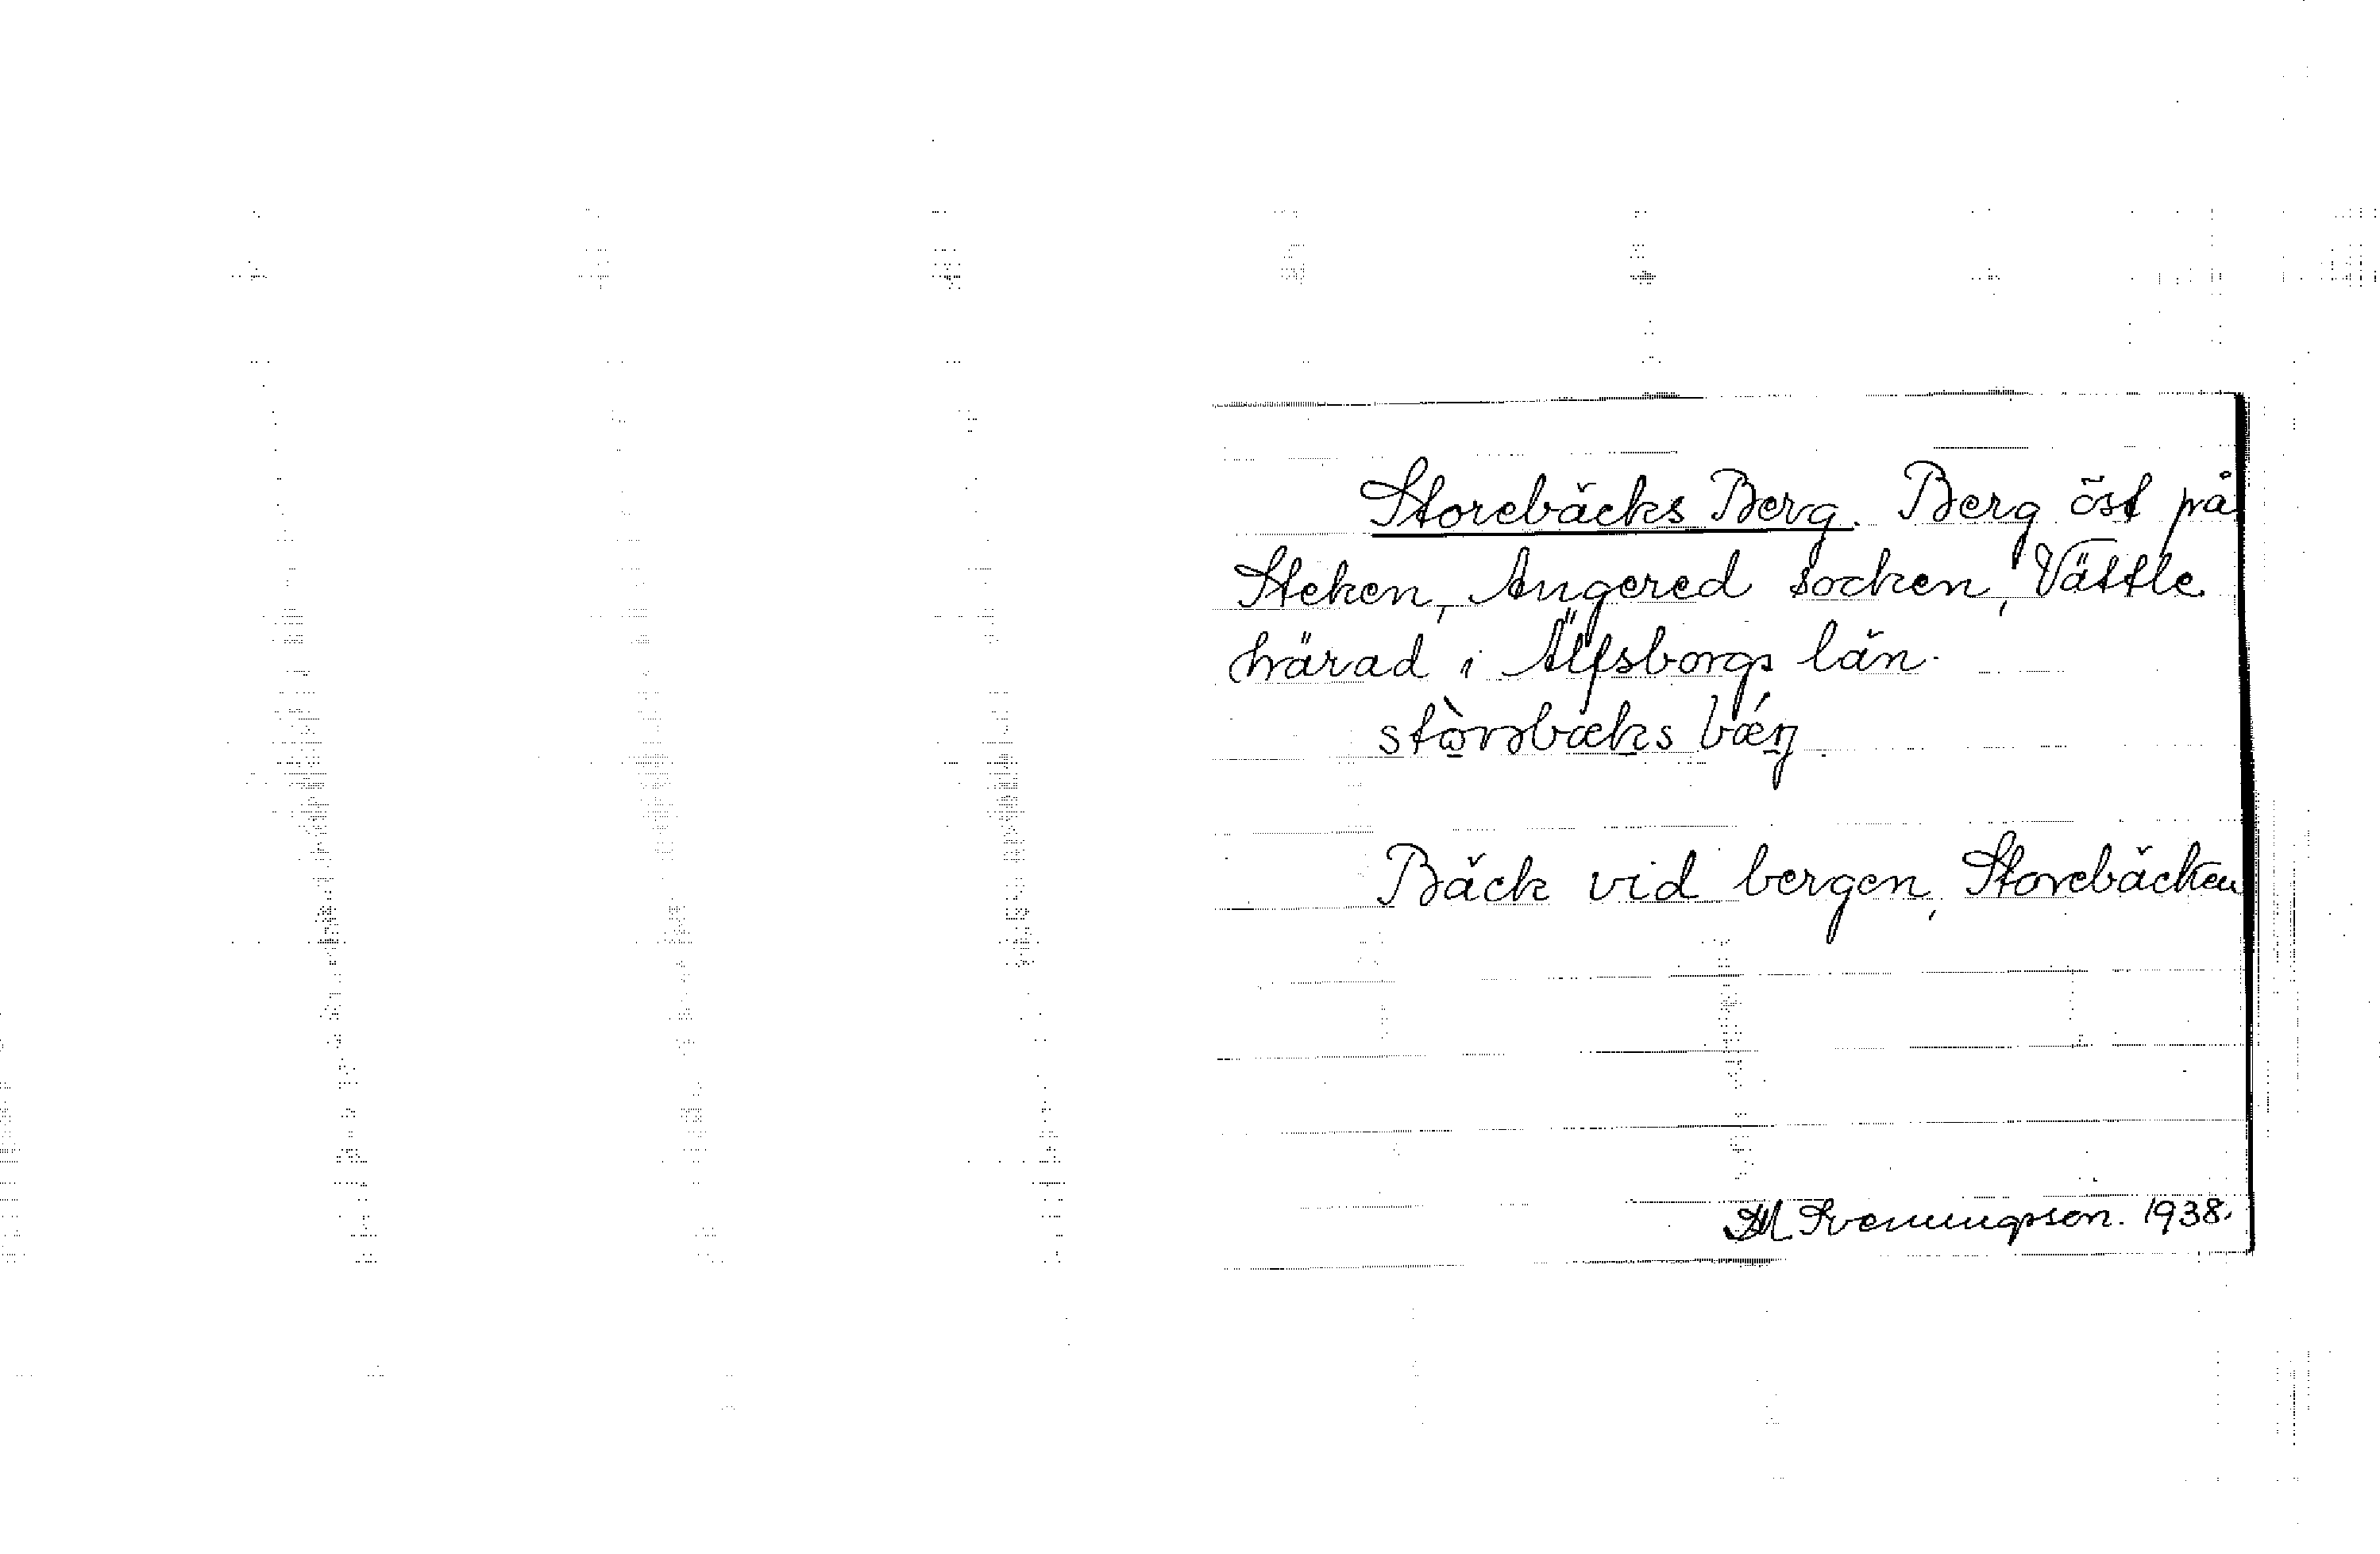 Storebäcks Berg. Berg öst på
Steken, Angered socken, Vättle
härad i Älfsborgs län.
Bäck vid bergen, Storebäcken
M Svenningson. 1938.